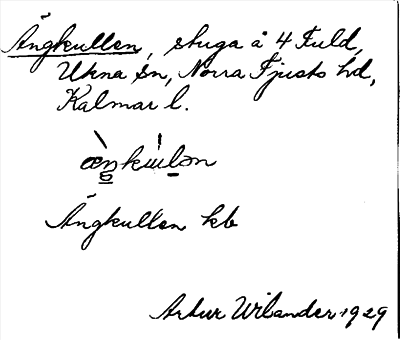 Ängkullen, stuga å 4 Fuld,
Ukna sn, Norra Tjusts hd,
Kalmar l.
Ängkullen kb
Artur Wilander 1929